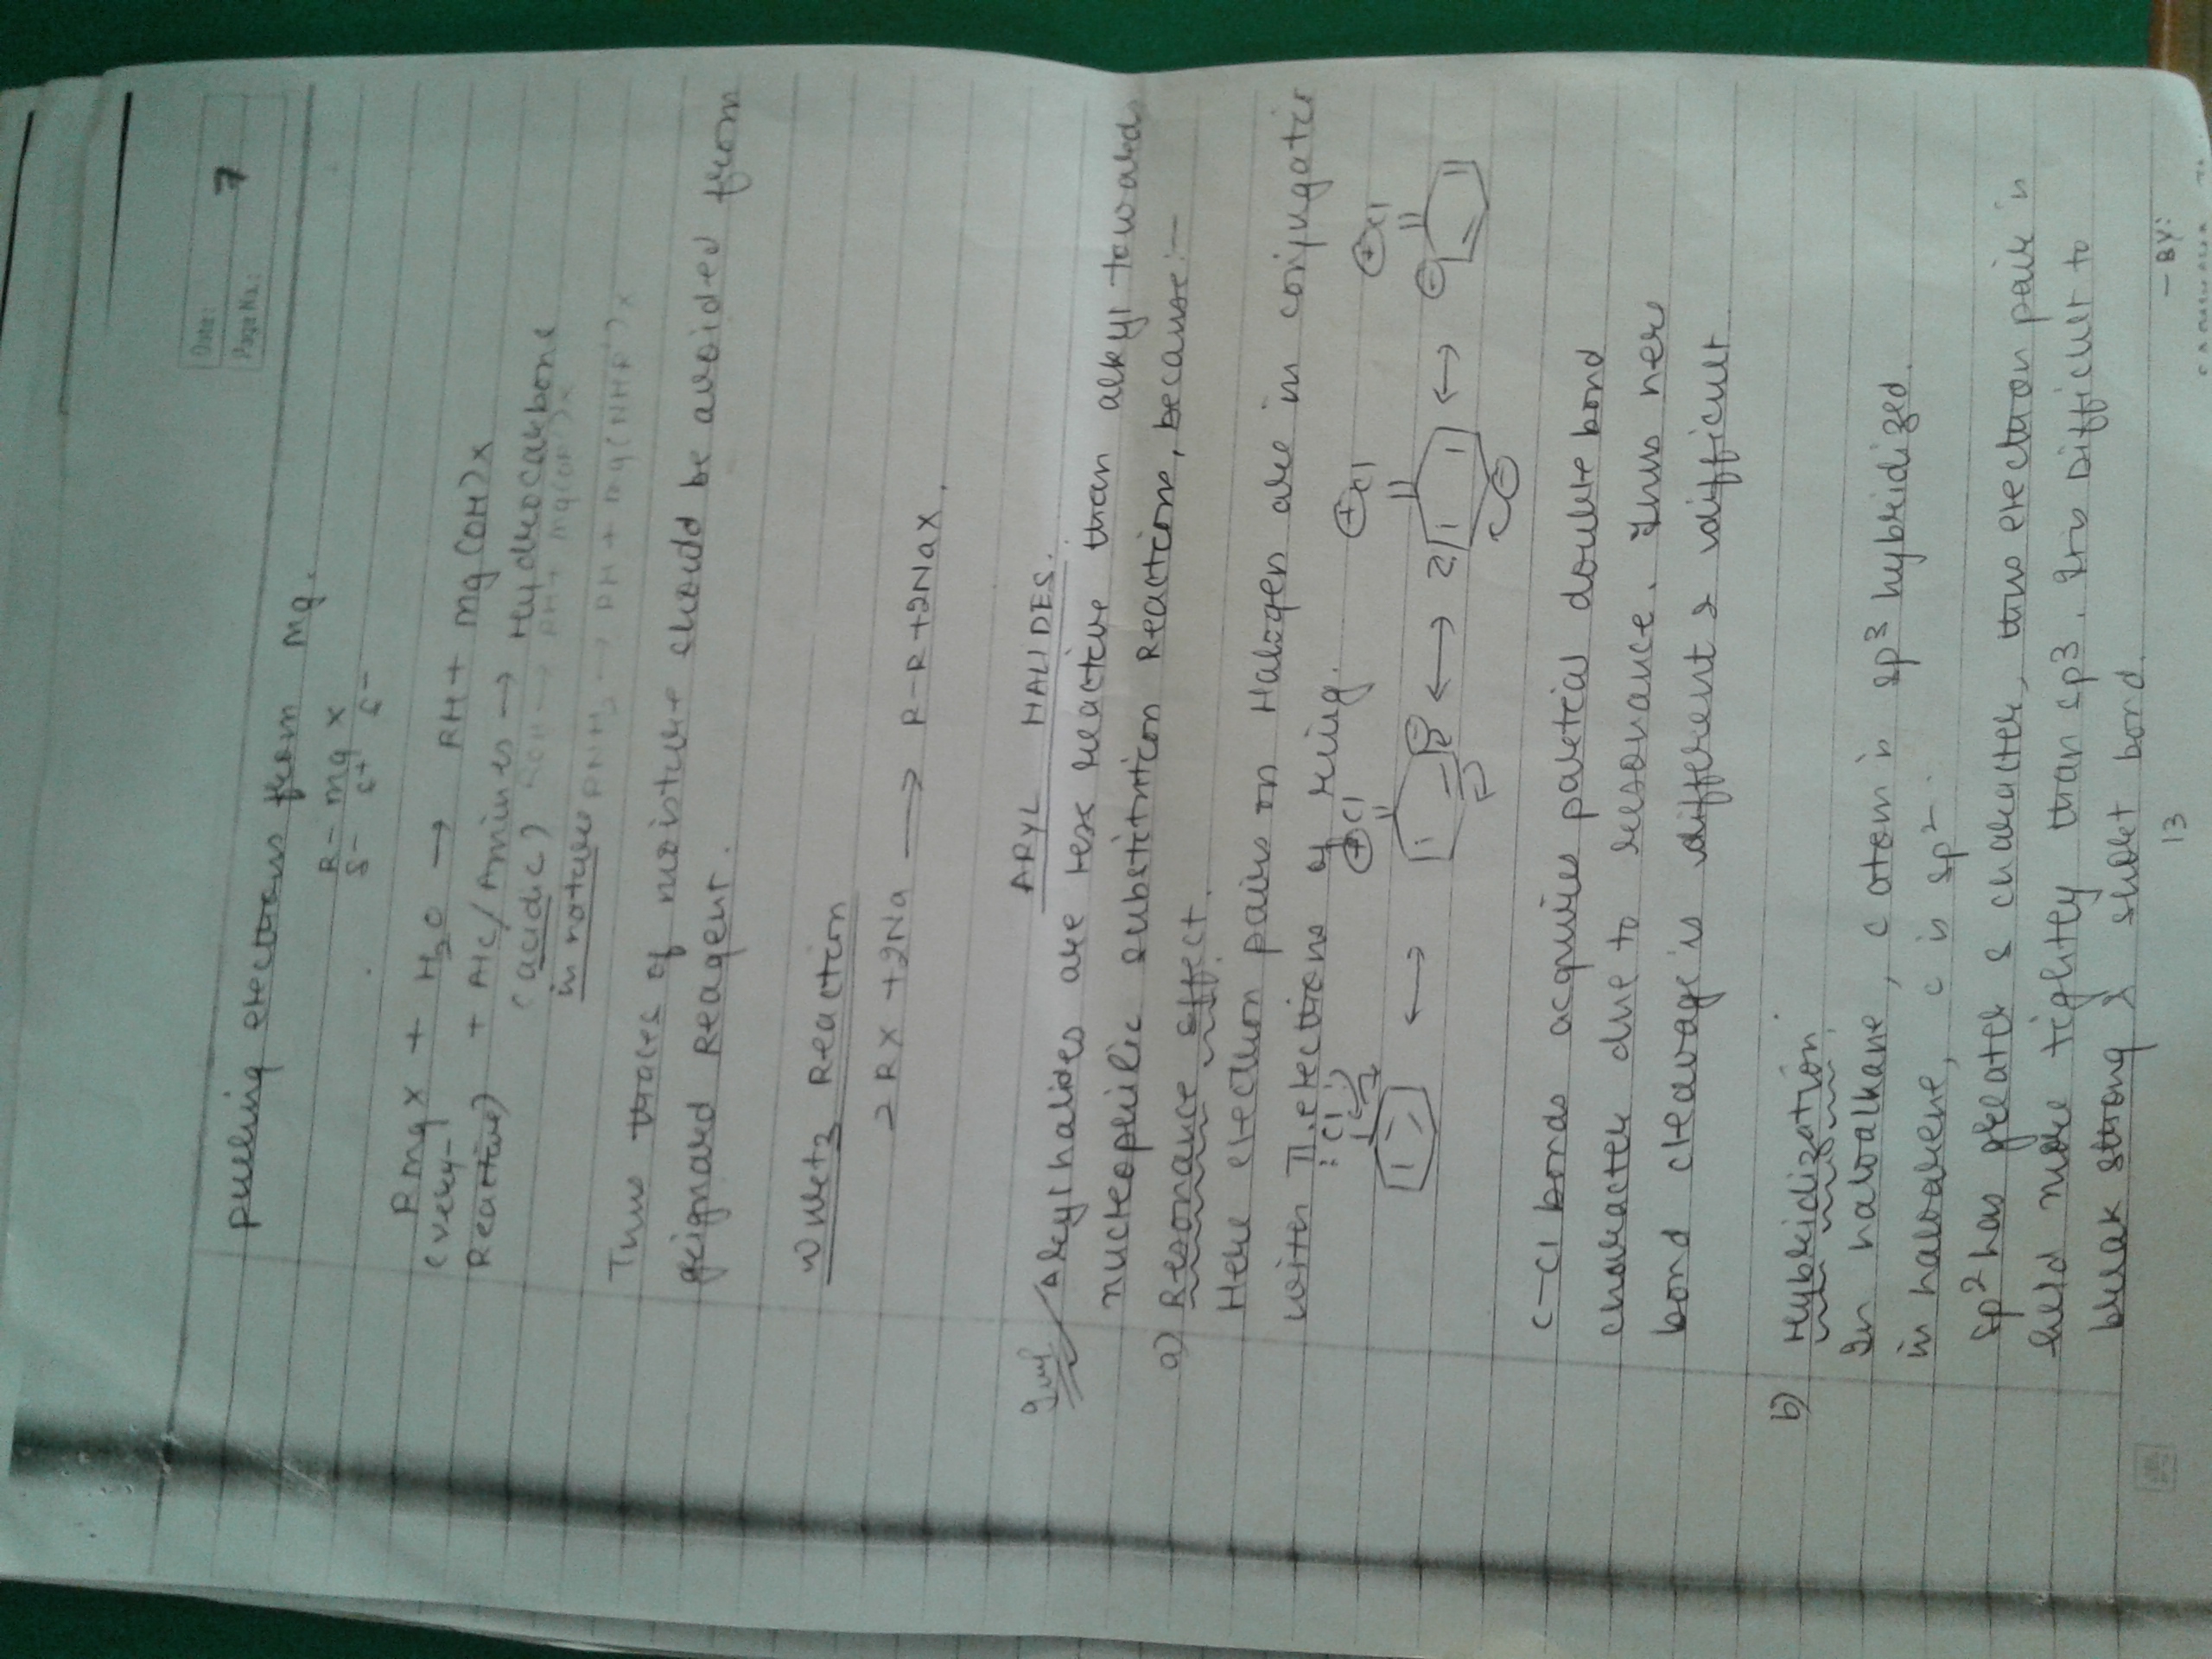 Date:
Page No.: 7
pulling electrons from Mg.
R - Mg X
δ- δ+ δ-
RMgX + H2O → RH + Mg(OH)X
(very
Reactive) + Alc/Amines → Hydrocarbons
(acidic) ROH → RH + Mg(OR')X
in nature RNH2 → RH + Mg(NHR')X
Thus traces of moisture should be avoided from
grignard Reagent.
Wurtz Reaction
2RX + 2Na → R-R + 2NaX.
ARYL HALIDES.
Imp Aryl halides are less reactive than alkyl towards
nucleophilic substitution Reactions, because :-
a) Resonance effect.
Here electron pairs on Halogen are in conjugation
with π electrons of ring.
:Cl: ⊕Cl ⊕Cl ⊕Cl
↔ ⊖ ↔ ⊖ ↔ ⊖
C-Cl bonds acquires partial double bond
character due to resonance. Thus
bond cleavage is different & difficult
b) Hybridization.
In haloalkane, C atom is sp3 hybridized.
in haloarene, C is sp2.
sp2 has greater s character, thus electron pair is
held more tightly than sp3. It is Difficult to
break strong & short bond.
13
- BY: